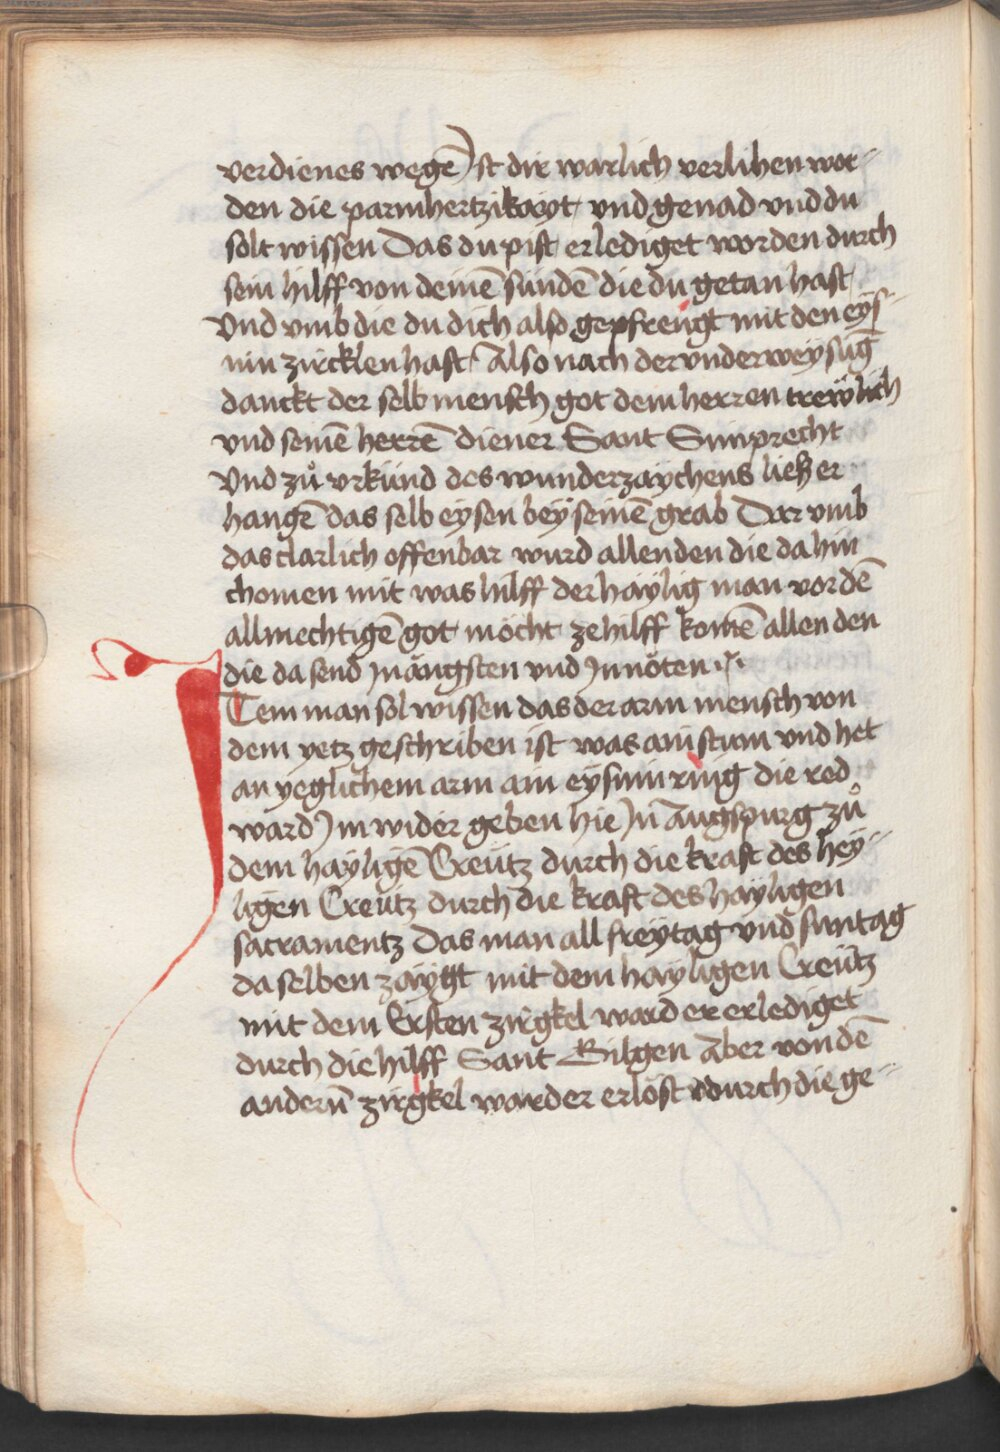 verdienes wegē Ist dir warlich verlihen wor⸗
den die parmhertzikayt und genad und du
solt wissen Das du pist erlediget worden durch
sein hilff von deinē sünden die du getan hast
Und umb die du dich also gepfrengt mit den eys⸗
nin zircklen hast Also nach der underweysūg
danckt der selb mensch got dem herren trewlich
und seinē herrē diener Sant Simprecht
Und zů urkünd des wunderzaychens ließ er
hangē das selb eysen bey seinē grab Dar umb
das clarlich offenbar wurd allen den die da hin
chomen mit was hilff der haylig man vor dē
allmechtigē got möcht ze hilff komē allen den
die da send In ängsten und In nöten
ITem man sol wissen das der arm mensch von
dem yetz geschriben ist was ain stum und het
an yeglichem arm ain eysnin ring die red
ward Im wider geben hie In Augspurg zů
dem hayligē Creütz durch die kraft des hey⸗
ligen Creütz durch die kraft des hayligen
sacramentz Das man all freytag und suntag
da selben zaygt mit dem hayligen Creütz
mit dem Ersten zirgkel ward er erlediget
durch die hilff Sant Gilgen Aber von dē
anderū zirgkel ward er erlöst durch die ge⸗